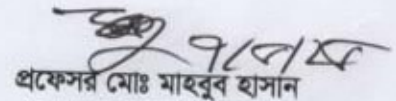 প্রফেসর মোঃ মাহবুব হাসান